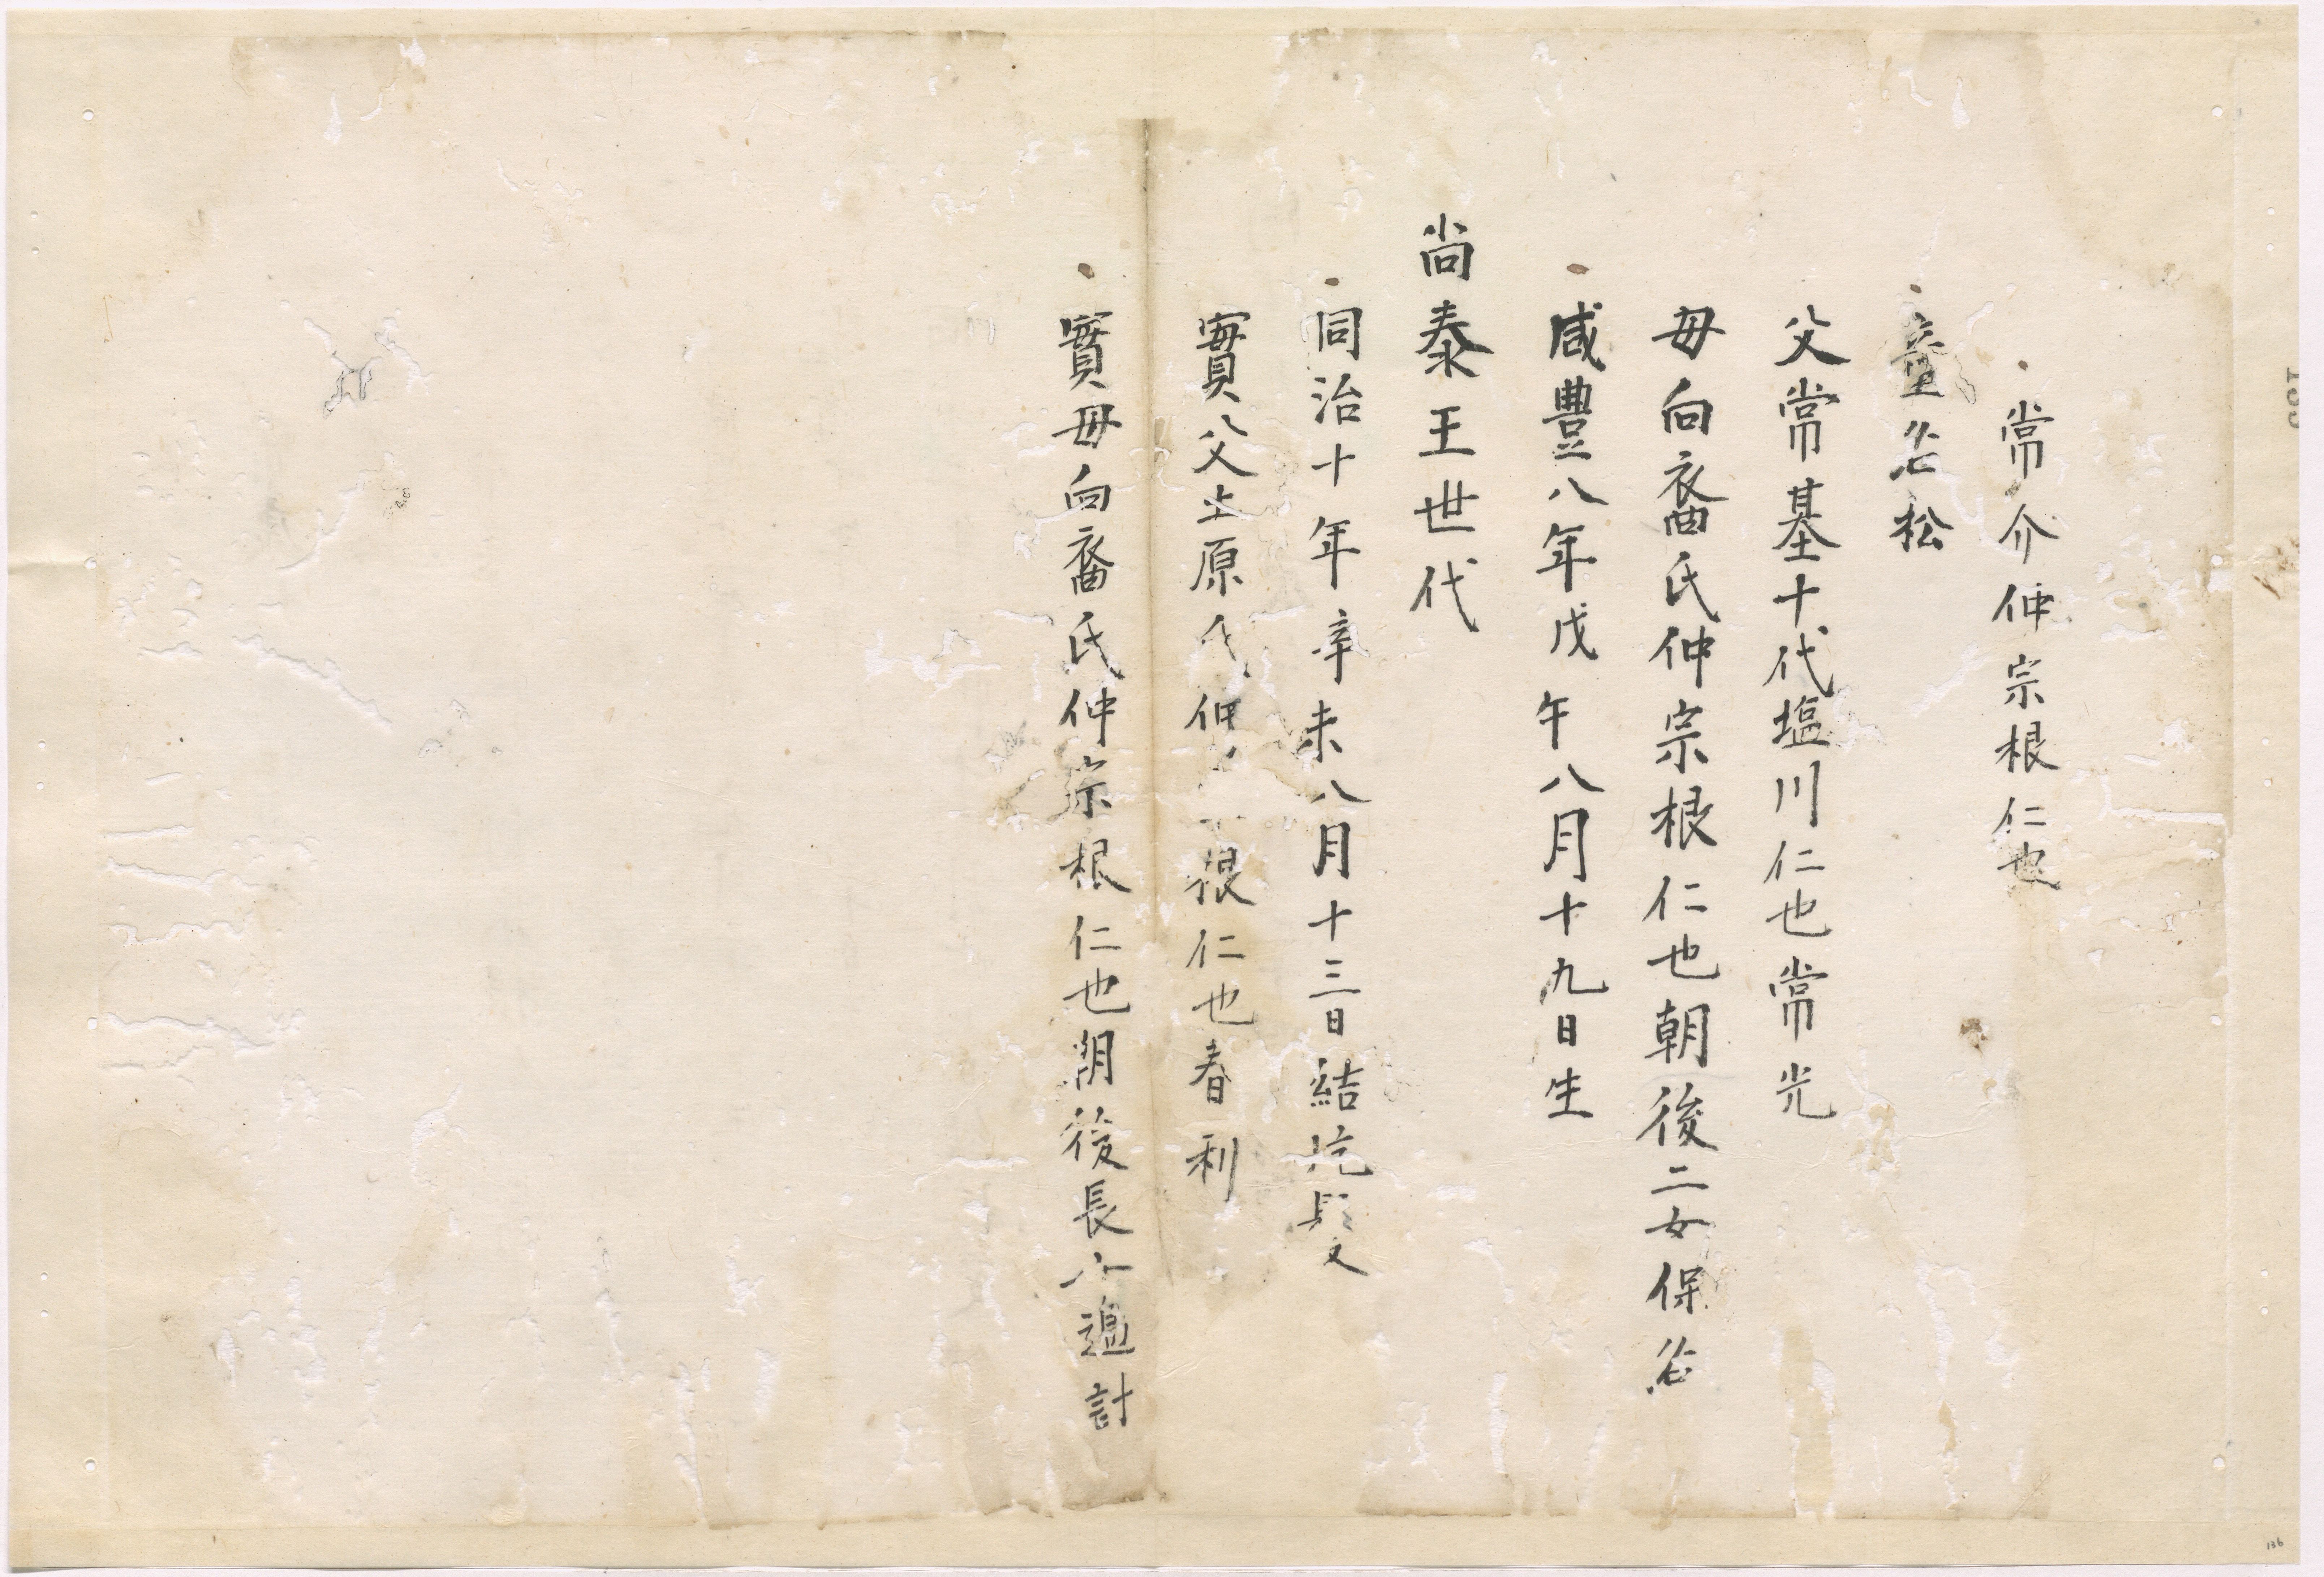 常介仲宗根仁也
童名松
父常基十代塩川仁也常光
母向裔氏仲宗根仁也朝後二女保名
咸豊八年戊午八月十九日生
尚泰王世代
同治十年辛未八月十三日結髪
實父土原氏仲根仁也春利
實母向裔氏仲宗根仁也朝後長女計
136